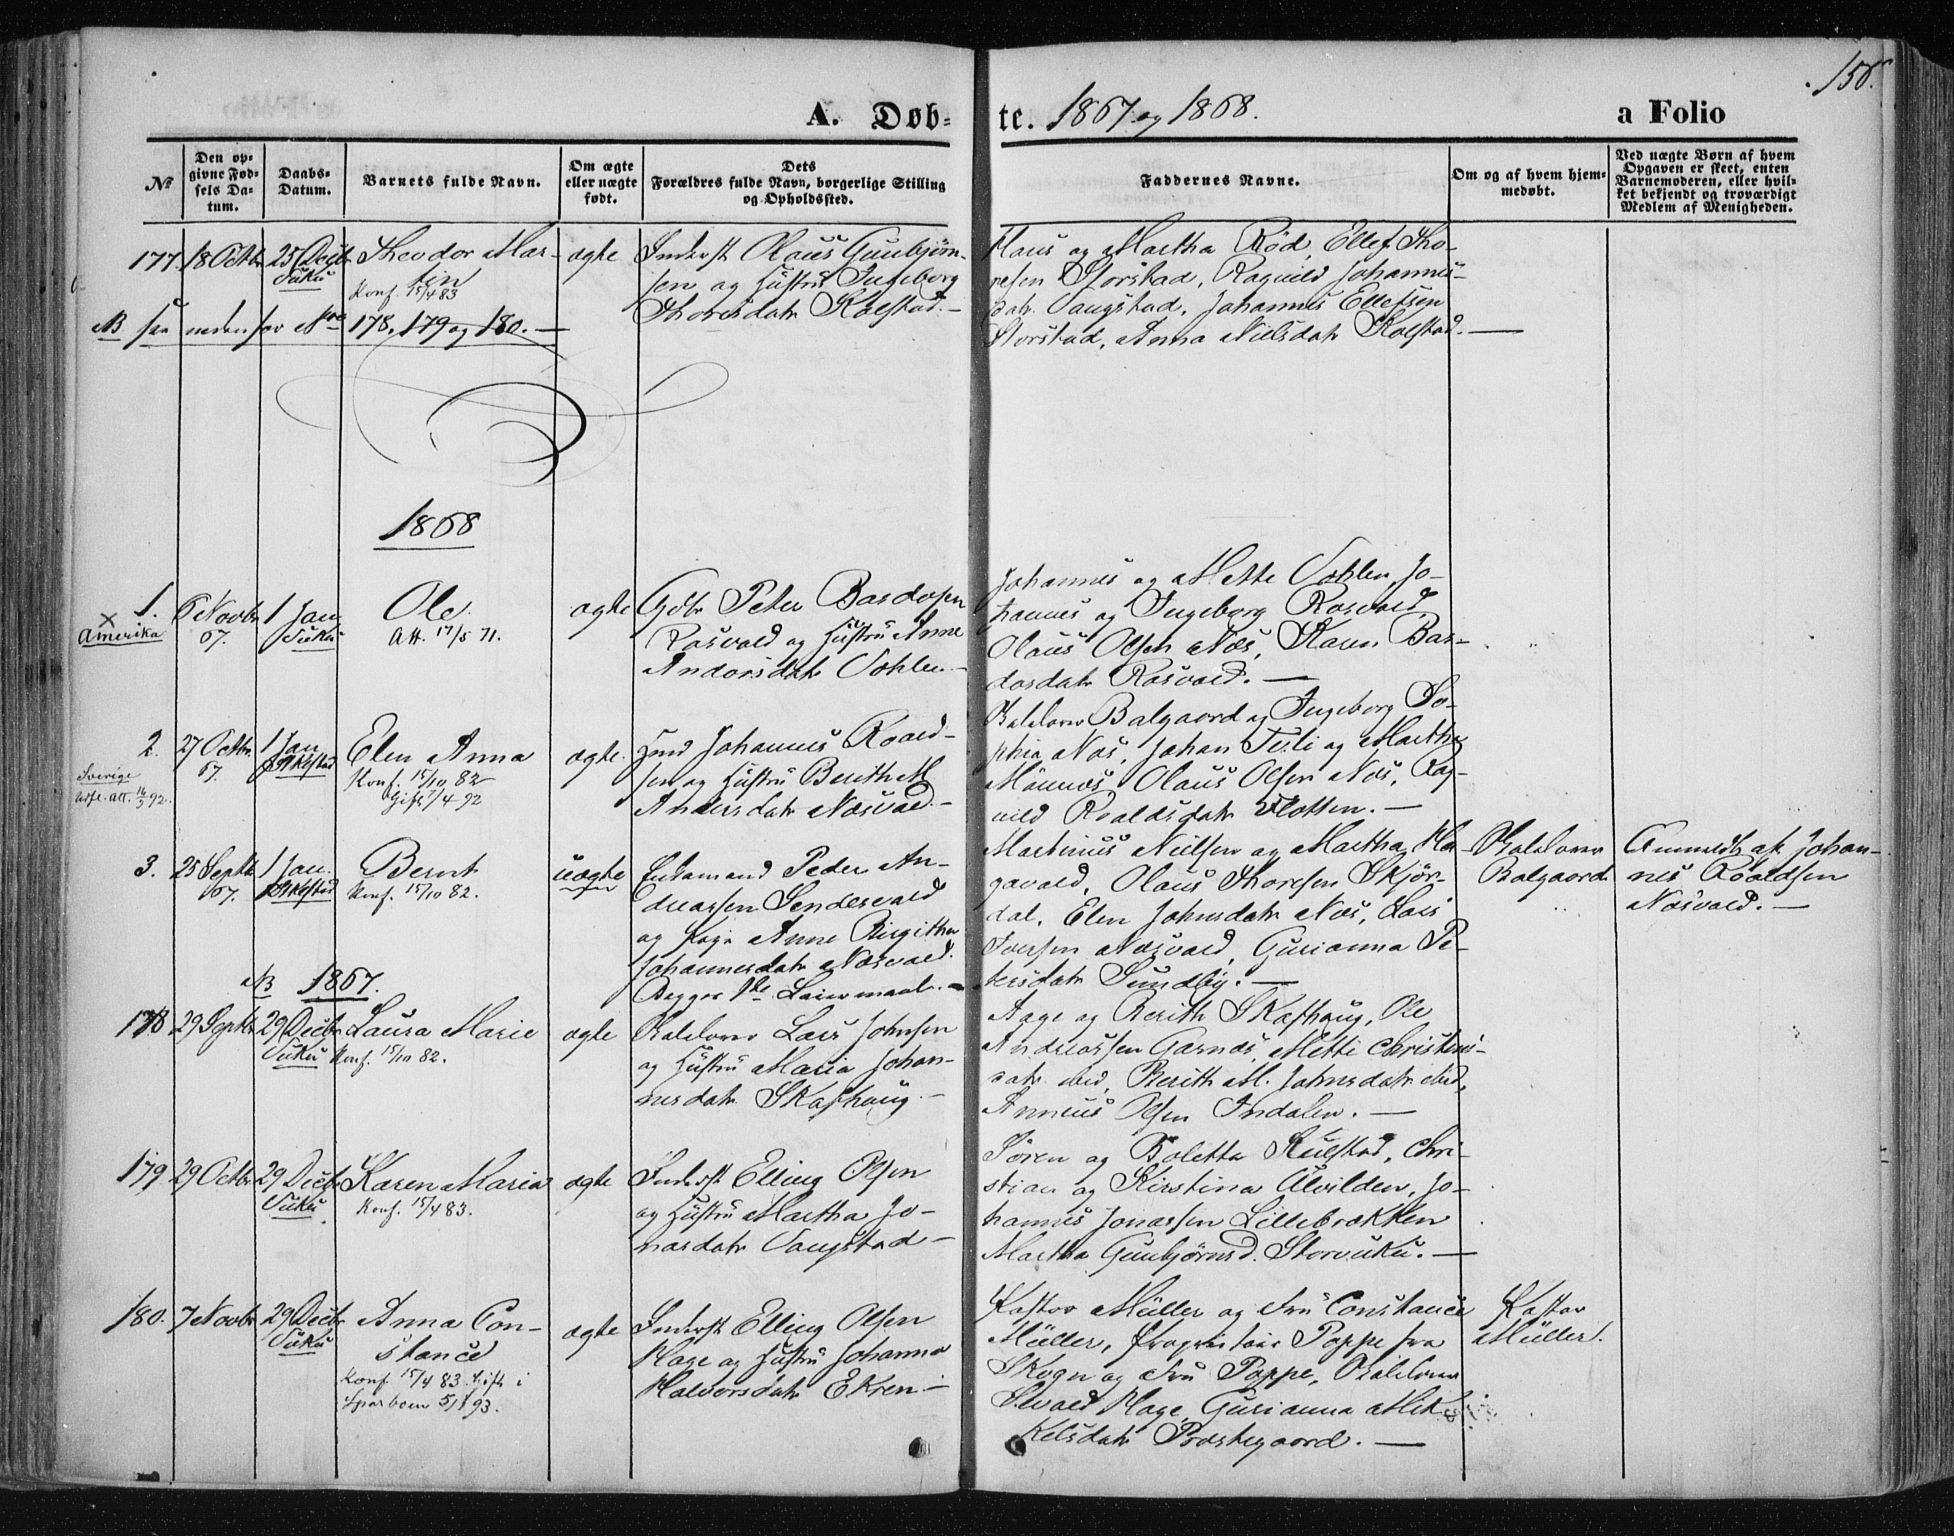 158.
A. Døb-
te. 1867 og 1868.
a Folio
No
Den op-
givne Fød-
sels Da-
tum.
Daabs-
Datum.
Barnets fulde Navn.
Om ægte
eller uægte
født.
Dets
Forældres fulde Navn, borgerlige Stilling
og Opholdssted.
Faddernes Navne.
Om og af hvem hjem-
medøbt.
Ved uægte Børn af hvem
Opgaven er skeet, enten
Barnemoderen, eller hvil-
ket bekjendt og troværdigt
Medlem af Menigheden.
177. 18 Octbr 25 Decbr Theodor Mar-
Vuku
tin
Konf. 15/4 83
ægte
Inderst Olaus Gunbjørn-
sen og Hustru Ingeborg
Thoresdatr Kolstad.-
Olaus og Martha Rød, Ellef Tho-
resen Storstad, Ragnild Johannes-
datr Vangstad, Johannes Ellefsen
Storstad, Anna Nilsdatr Kolstad.-
NB see nedenfor Nro 178, 179 og 180.-
1868
1.
× Amerika
6 Novbr
67.
1 Jan
Vuku
Ole
Att. 17/5 71.
ægte
Gdbr Peter Bardosen
Rosvold og Hustru Anne
Andorsdatr Vohlen-
Johannes og Mette Vohlen, Jo-
hannes og Ingeborg Rosvold,
Olaus Olsen Næs, Karen Bar-
dosdatr Rosvold.-
2.
Sverige
Udfl. att. 16/3 92.
27 Octbr
67.
1 Jan
Elen Anna
Konf. 15/10 82
Gift 7/4 92
ægte.
Hmd Johannes Roald-
sen og Hustru Berith M
Andersdatr Næsvold.-
Balgaard og Ingeborg So-
phia Næs, Johan Tesli og Martha
Månnæs, Olaus Olsen Næs, Rag-
nild Roaldsdatr Flotten.-
3.
25 Septbr
67.
1 Jan.
Bernt
Konf. 15/10 82.
uægte
Enkemand Peder An-
dreassen Sendesvold
og Pige Anne Birgitha
Johannesdatr Næsvold.
Begges 1ste Leiermaal.-
Martinus Nielsen og Martha Ha-
gavold, Olaus Thoresen Skjør-
dal, Elen Johnsdatr Næs, Lars
Iversen Næsvold, Gurianna Pe-
tersdatr Sundby.-
Balgaard
Anmeldt af Johan-
nes Roaldsen
Næsvold.-
NB 1867.
178 29 Septbr 29 Decbr Laura Marie
Vuku Konf. 15/10 82.
ægte
Lars Johnsen
og Hustru Maria Johan-
nesdatr Skafhaug.-
Aage og Berith Skafhaug, Ole
Andreassen Garnæs, Metti Christens-
datr ibid, Berith M. Johnsdatr ibid,
Anneus Olsen Indalen.-
179 29 Octbr 29 Decbr Karen Maria
Vuku. Konf. 15/4 83.
ægte
Inderst Elling Olsen
og Hustru Martha Jo-
nasdatr Vangstad-
Søren og Boletta Kulstad, Chri-
stian og Kirstina Alvilden, Jo-
hannes Jonassen Lillebrækken
Martha Gunbjørnsd. Storvuku.-
180. 7 Novbr 29 Decbr Anna Con-
Vuku
stance
Konf 15/4 83. Gift i
Sparboen 5/1 93.
ægte
Inderst Elling Olsen
Hage og Hustru Johanna
Halvorsdatr Ekren-
Pastor Müller og Fru Constance
Müller, Proprietair Poppe fra
Skogn og Fru Poppe,
Sivald Hage, Gurianna Mik-
kelsdatr Præstegaard.-
Pastor
Müller.